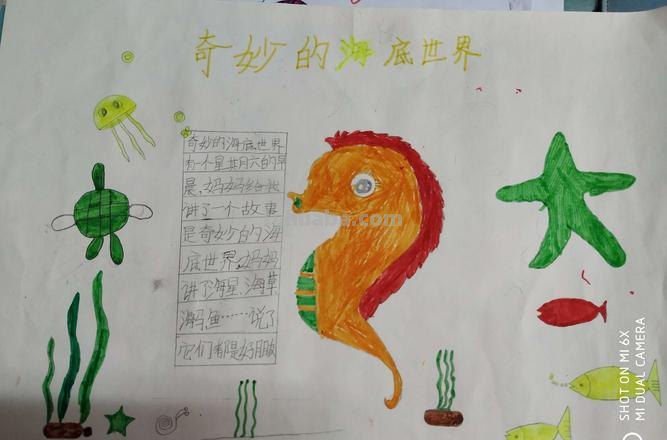 奇妙的海底世界
奇妙的海底世界
有一个星期六的早
晨,妈妈给我
讲了一个故事
是奇妙的海
底世界,妈妈
讲了海星、海草
海马,鱼……说了
它们都是好朋
SHOT ON MI 6X
MI DUAL CAMERA